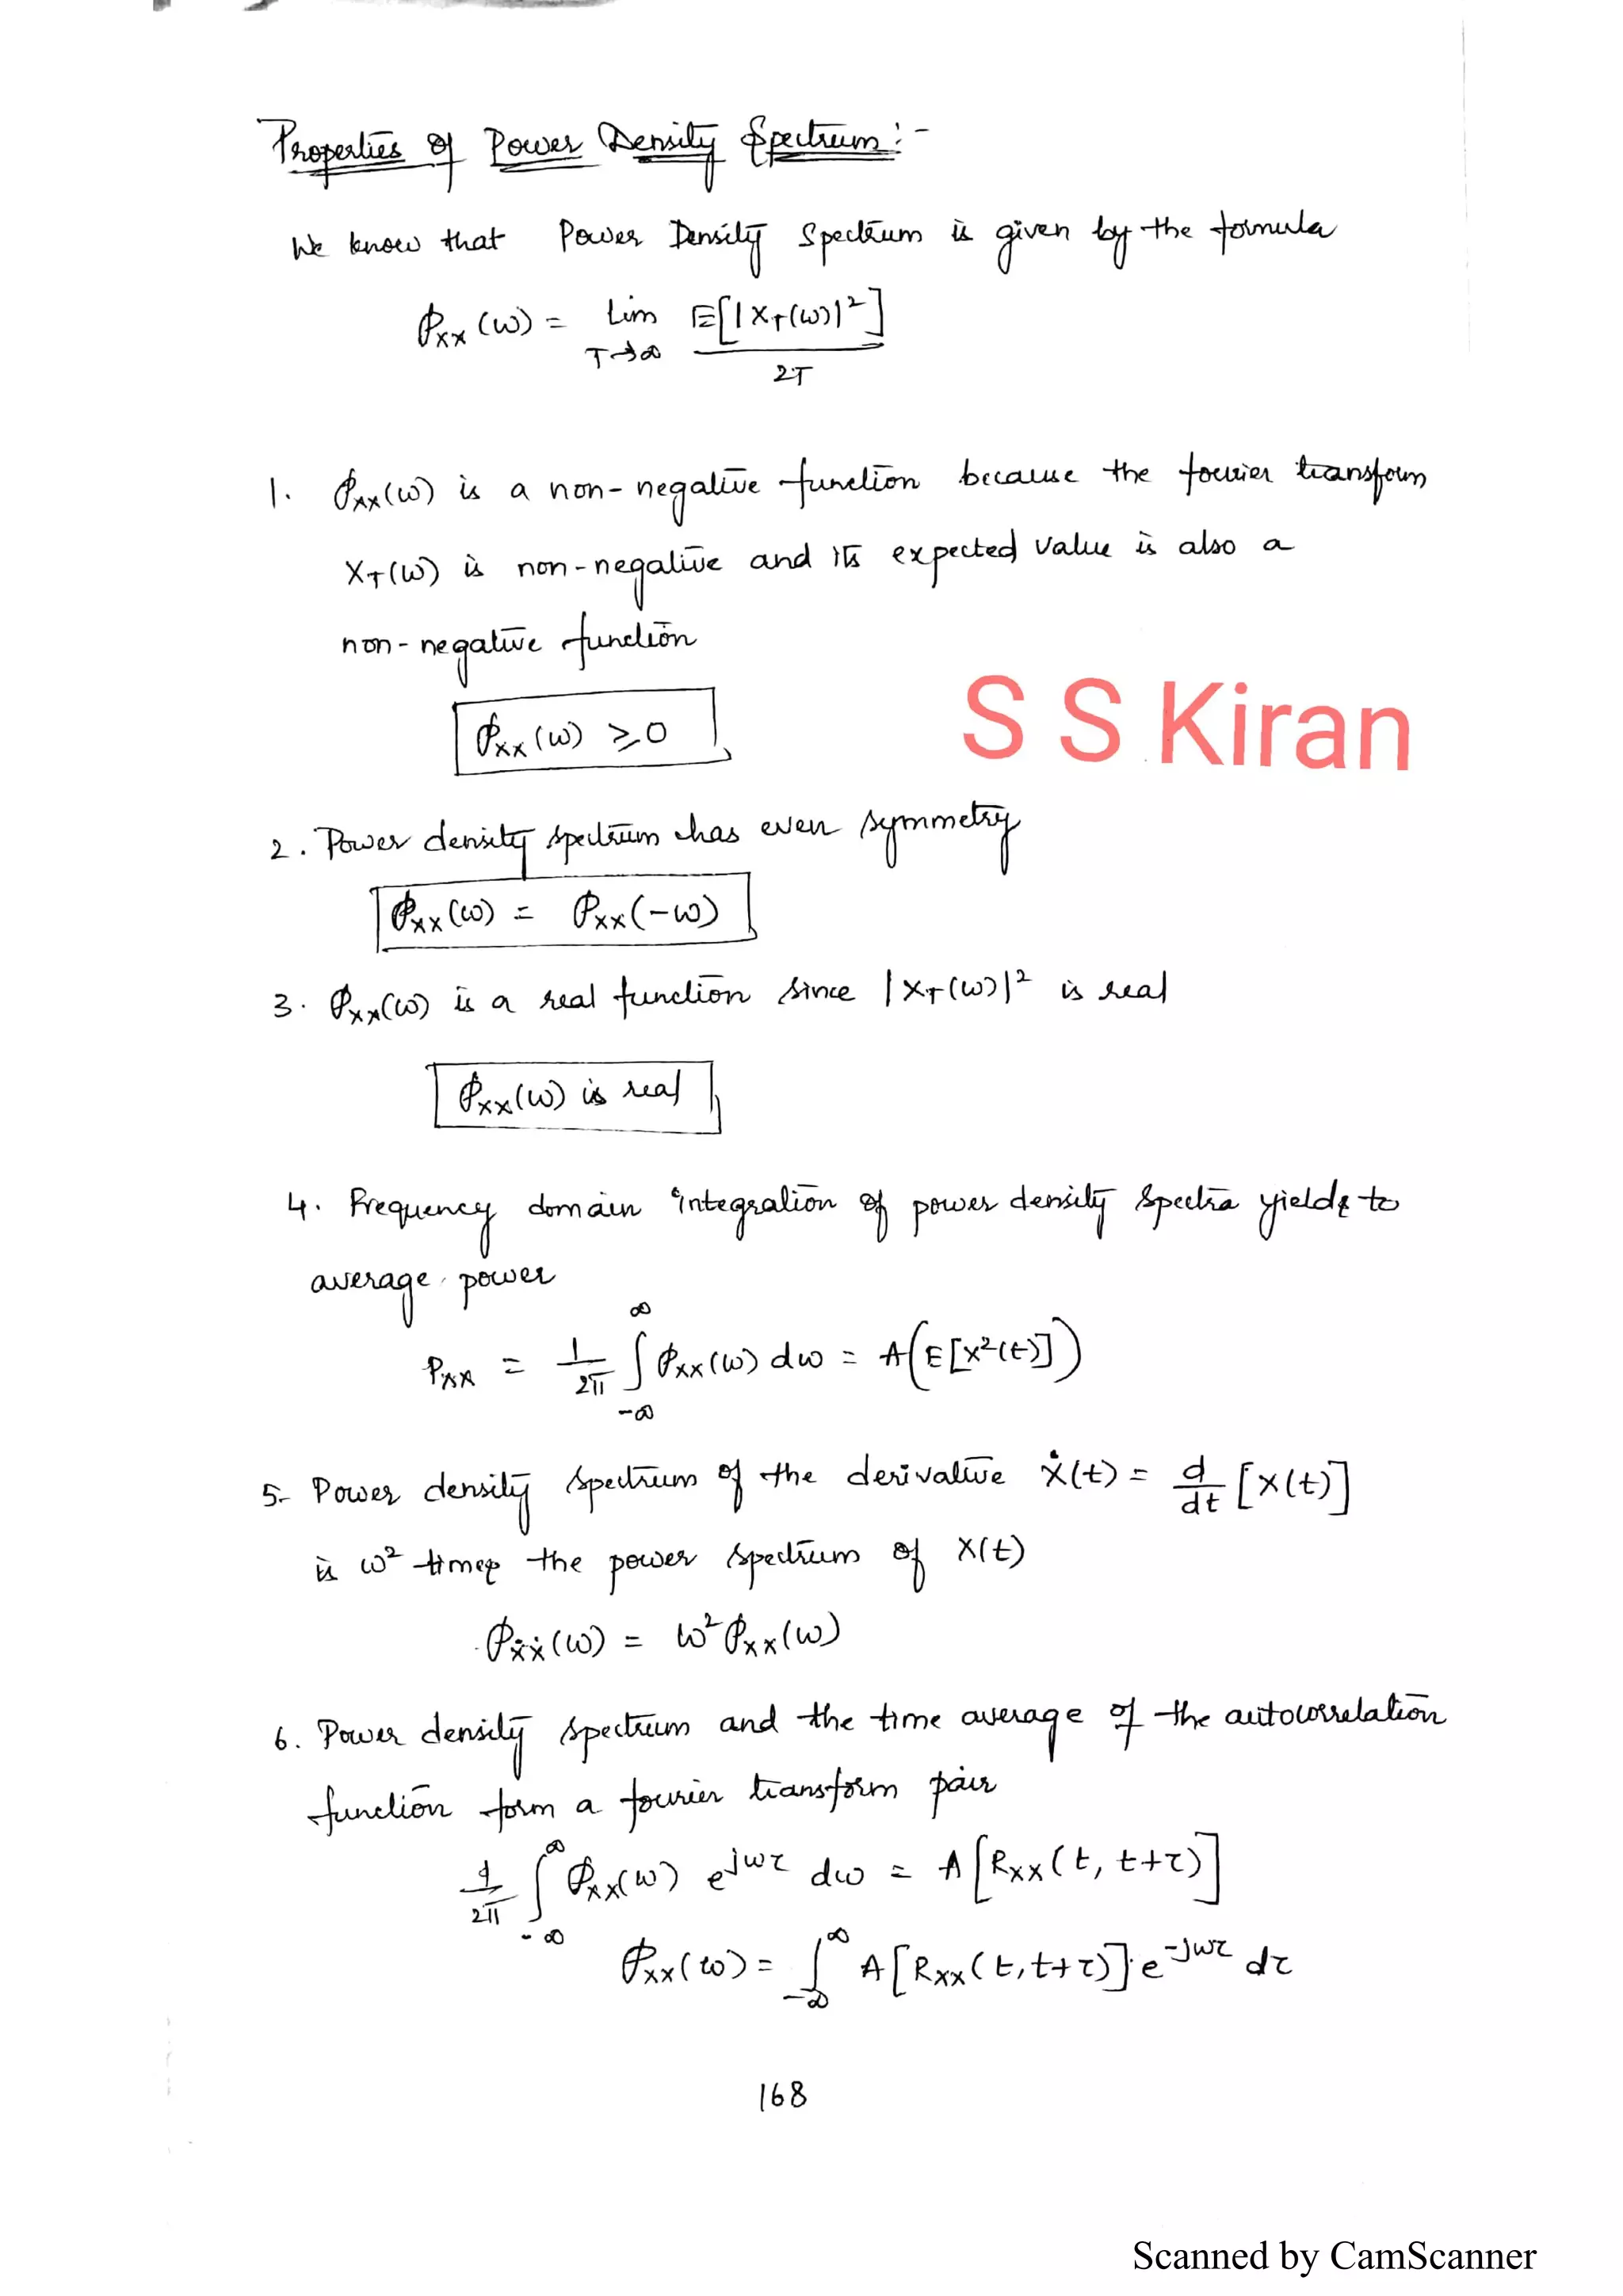 Properties of Power Density Spectrum:-
We know that Power Density Spectrum is given by the formula
ϕxx(ω) = Lim T→∞ E[|XT(ω)|²] / 2T
1. ϕxx(ω) is a non-negative function because the fourier transform
XT(ω) is non-negative and its expected value is also a
non-negative function
ϕxx(ω) ≥ 0
S S Kiran
2. Power density spectrum has even symmetry
ϕxx(ω) = ϕxx(-ω)
3. ϕxx(ω) is a real function since |XT(ω)|² is real
ϕxx(ω) is real
4. Frequency domain integration of power density spectra yields to
average power
Pxx = 1/2π ∫_{-∞}^{∞} ϕxx(ω) dω = A(E[X²(t)])
5. Power density spectrum of the derivative Ẋ(t) = d/dt [X(t)]
is ω² times the power spectrum of X(t)
ϕẋẋ(ω) = ω² ϕxx(ω)
6. Power density spectrum and the time average of the autocorrelation
function form a fourier transform pair
1/2π ∫_{-∞}^{∞} ϕxx(ω) e^{jωτ} dω = A[Rxx(t, t+τ)]
ϕxx(ω) = ∫_{-∞}^{∞} A[Rxx(t, t+τ)].e^{-jωτ} dτ
168
Scanned by CamScanner